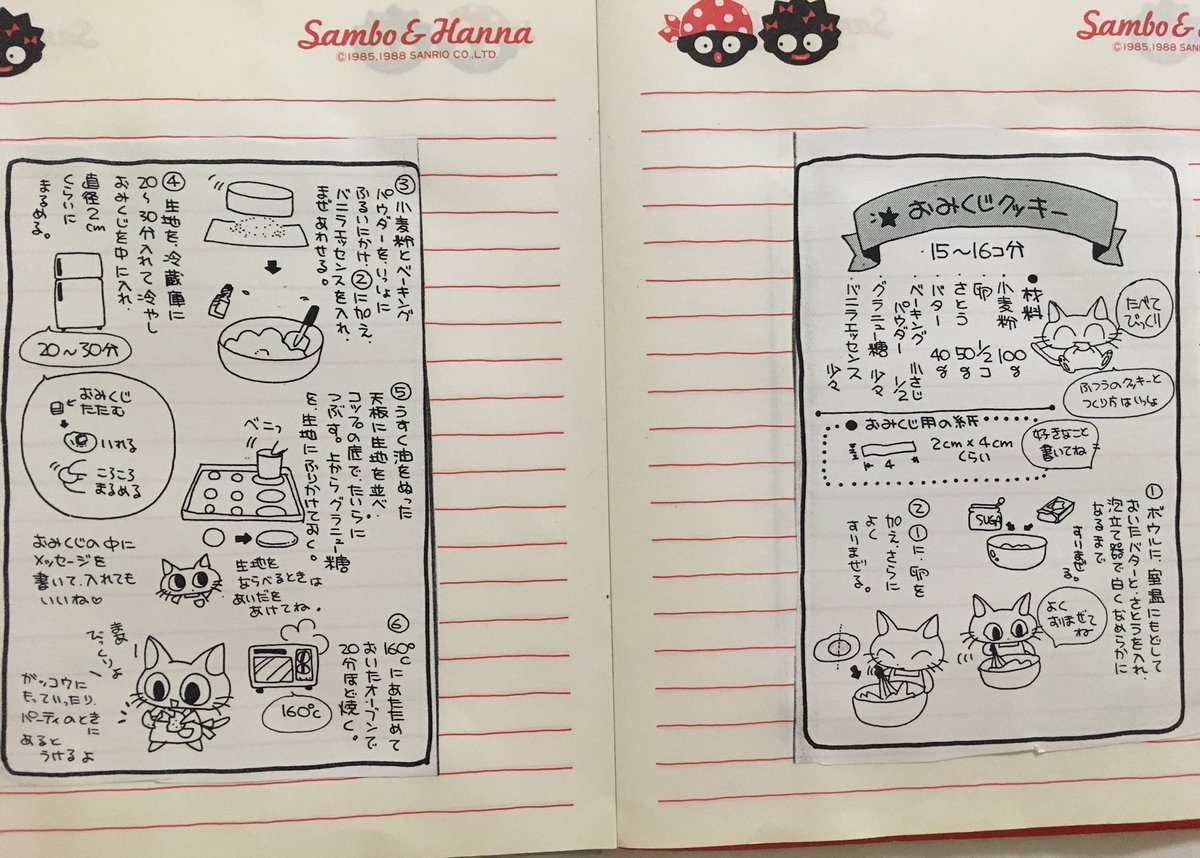 Sambo & Hanna
©1985,1988 SANRIO CO.,LTD.
★おみくじクッキー
15〜16コ分
たべて
びっくり
●材料
小麦粉 100g
卵 1/2コ
さとう 50g
バター 40g
ベーキング
パウダー 小さじ1/2
グラニュー糖 少々
バニラエッセンス 少々
ふつうのクッキーと
つくり方はいっしょ
●おみくじ用の紙
2
4
2cm×4cm
くらい
好きなこと
書いてね
①ボウルに、室温にもどして
おいたバターと、さとうを入れ、
泡立て器で白くなめらかに
なるまで
すりまぜる。
SUGA
②①に、卵を
加え、さらに
よく
すりまぜる。
よく
まぜて
ね
Sambo & Hanna
©1985,1988 SANRIO CO.,LTD.
③小麦粉とベーキング
パウダーを、いっしょに
ふるいにかけ、②に加え、
バニラエッセンスを入れ、
まぜあわせる。
④生地を、冷蔵庫に
20〜30分入れて冷やし
おみくじを中に入れ、
直径2cm
くらいに
まるめる。
20〜30分
おみくじ
たたむ
いれる
ころころ
まるめる
⑤うすく油をぬった
天板に生地を並べ、
コップの底で、たいらに
つぶす。上からグラニュー糖
を、生地にふりかけておく。
ベニっ
生地を
ならべるときは
あいだを
あけてね。
おみくじの中に
メッセージを
書いて、入れても
いいね♡
⑥160℃にあたためて
おいたオーブンで
20分ほど焼く。
160℃
まあー
びっくりよ
ガッコウに
もっていったり、
パーティのとき
に
あると
うけるよ